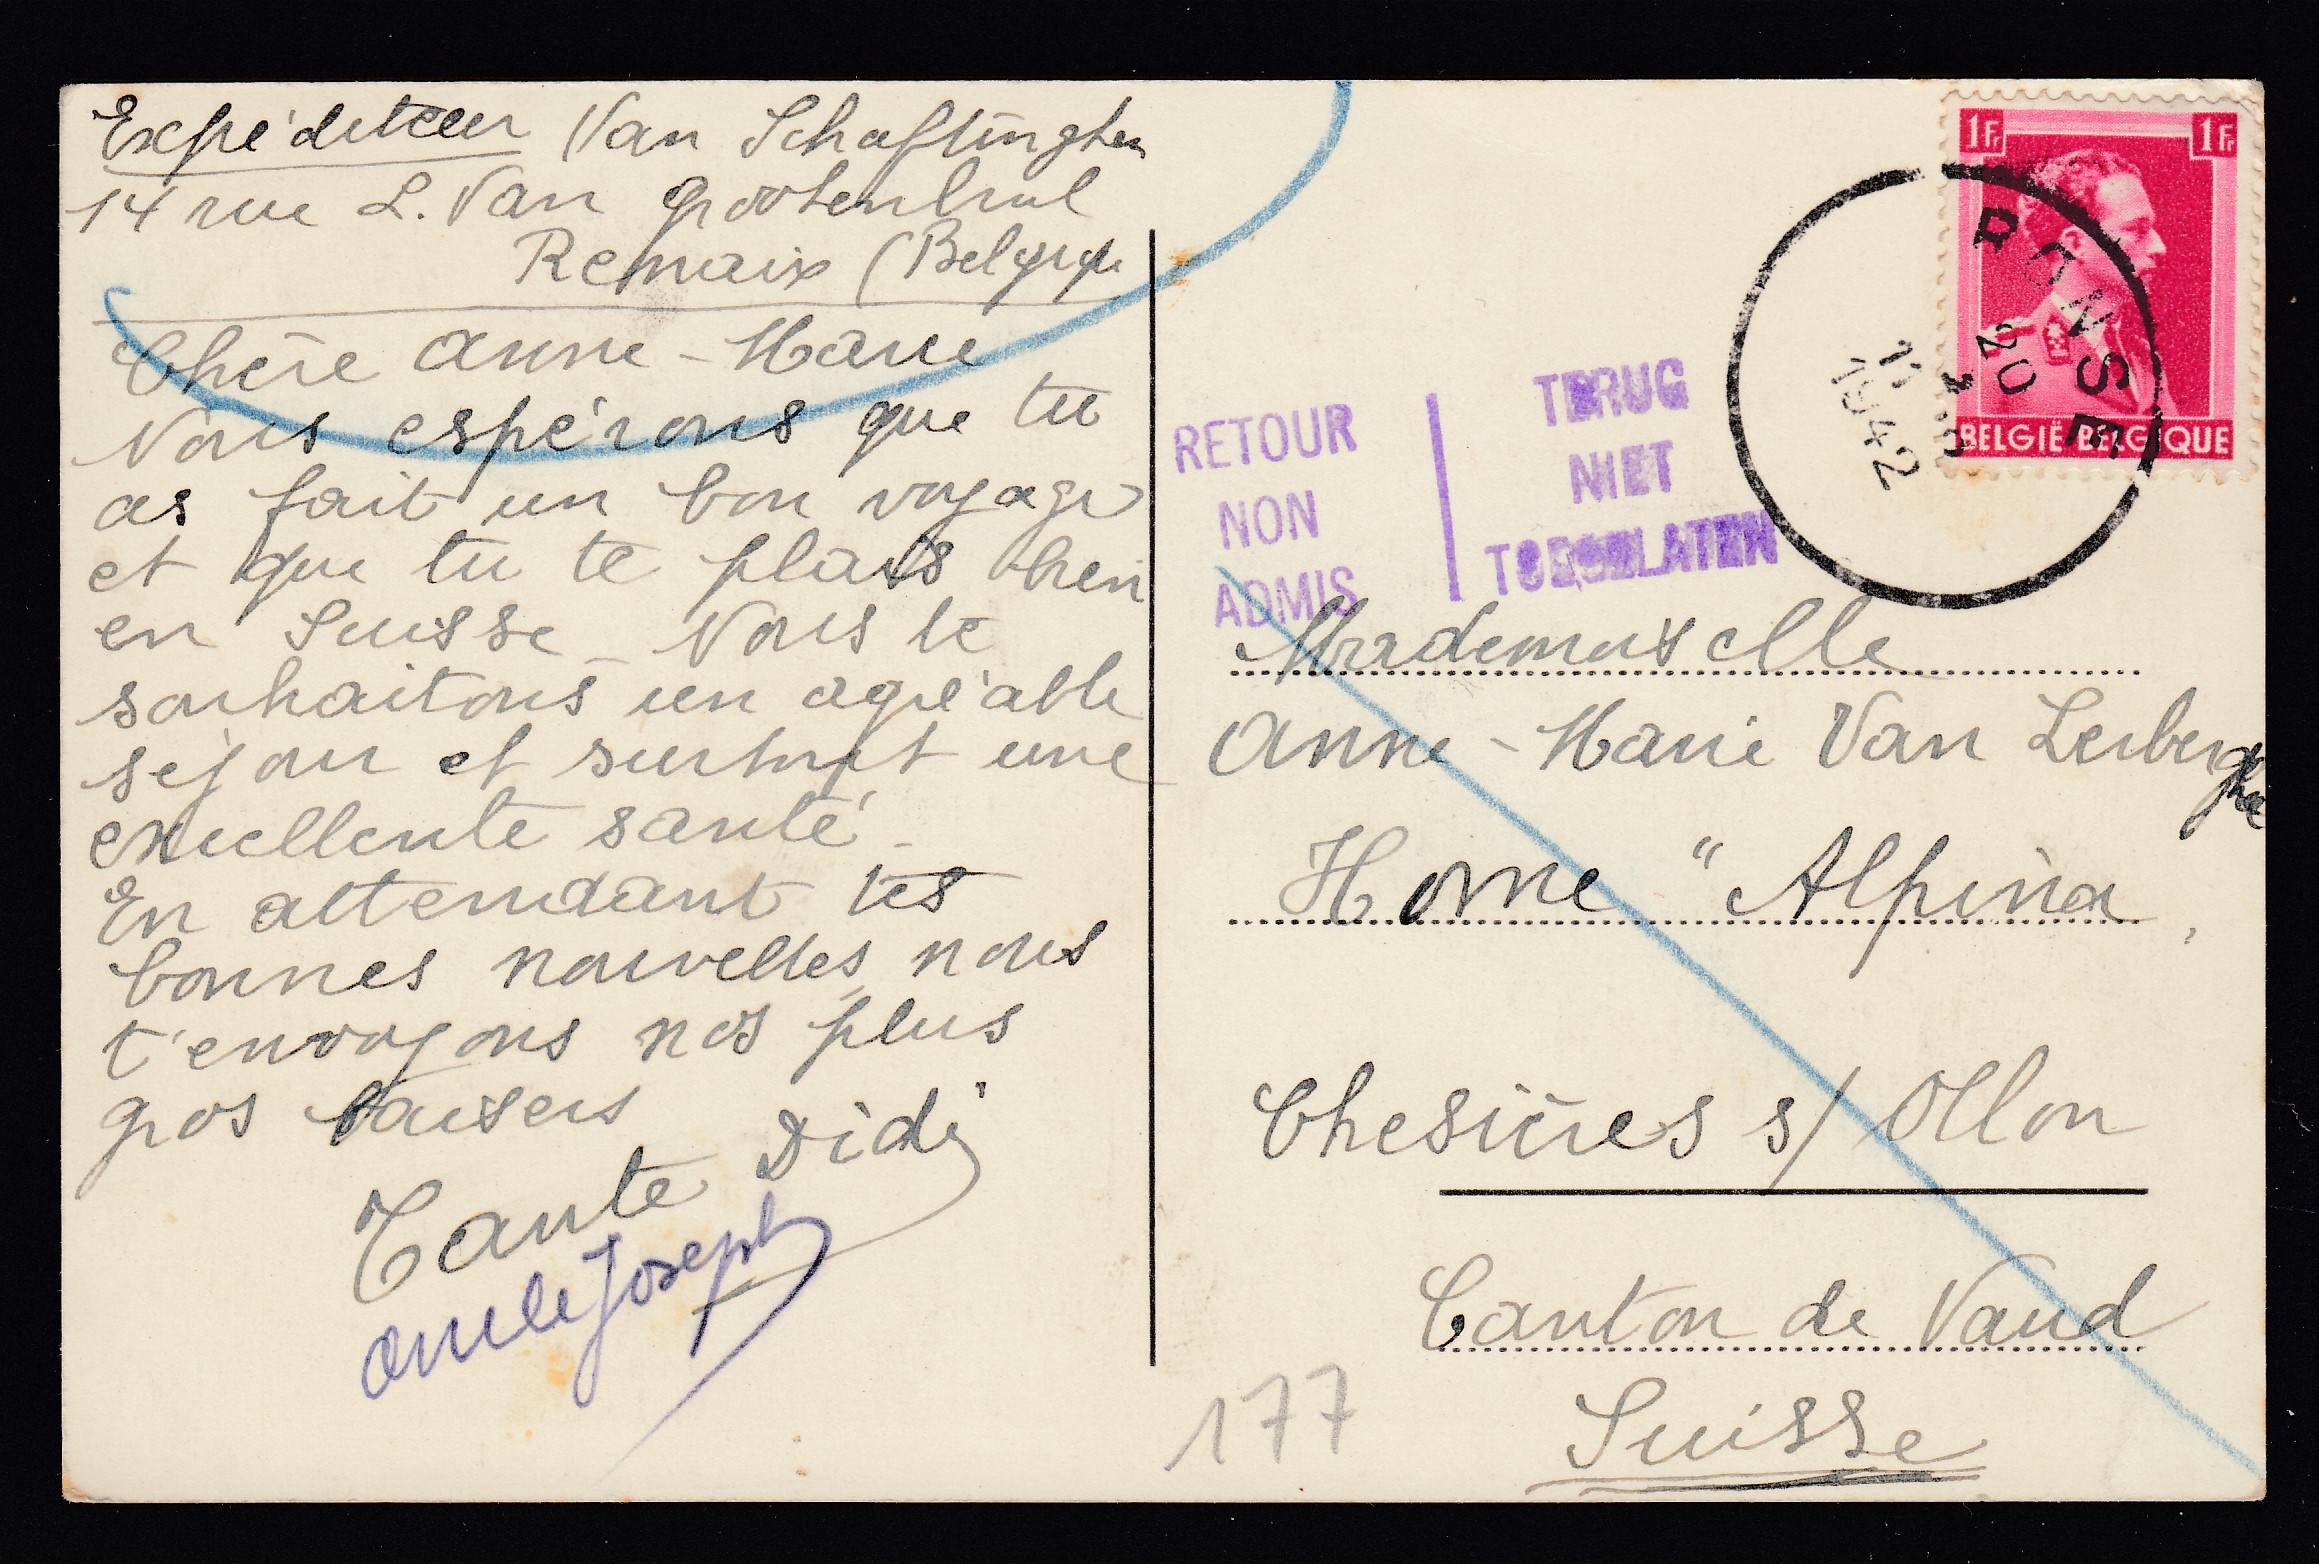 Expéditeur Van Schaftinghen
14 rue L. Van
Renaix (Belgique
Chère Anne-Marie
Nous espérons que tu
as fait un bon voyage
et que tu te plais bien
en Suisse_ Nous te
souhaitons un agréable
séjour et surtout une
excellente santé_
En attendant tes
bonnes nouvelles, nous
t'envoyons nos plus
gros baisers
Tante Didi
Oncle Joseph
RETOUR
NON
ADMIS
TERUG
NIET
TOEGELATEN
1Fr 1Fr
BELGIË-BELGIQUE
RONSE
20
1942
Mademoiselle
Anne-Marie Van Lerberghe
Home "Alpina,
Chesières s/ Ollon
Canton de Vaud
Suisse
177